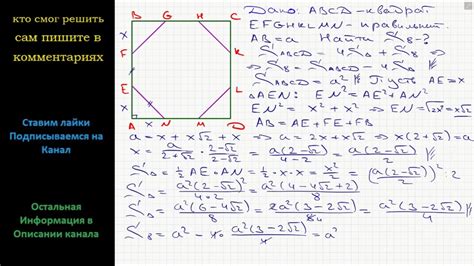 кто смог решить
сам пишите в
комментариях
Ставим лайки
Подписываемся на
Канал
Остальная
Информация в
Описании канала
B G H C
F K
E L
A N M D
x
x
x
Дано: ABCD - квадрат
EFGHKLMN - правильный.
AB = a Найти S₈ - ?
S_ABCD = 4S_Δ + S₈ ⇒
⇒ S₈ = S_ABCD - 4S_Δ
S_ABCD = a² Пусть AE = x
ΔAEN: EN² = AE² + AN²
EN² = x² + x² ⇒ EN = √2x² = x√2
AB = AE + FE + FB
a = x + x√2 + x ⇒ a = 2x + x√2 ⇒ x(2+√2) = a
x = a/(2+√2) · (2-√2)/(2-√2) = a(2-√2)/(4-2) = a(2-√2)/2
S_Δ = 1/2 AE · AN = 1/2 · x · x = x²/2 = (a(2-√2)/2)² : 2
S_Δ = a²(2-√2)²/(4·2) = a²(4-4√2+2)/8
S_Δ = a²(6-4√2)/8 = 2a²(3-2√2)/84 = a²(3-2√2)/4
S₈ = a² - 4 · a²(3-2√2)/4 = a²